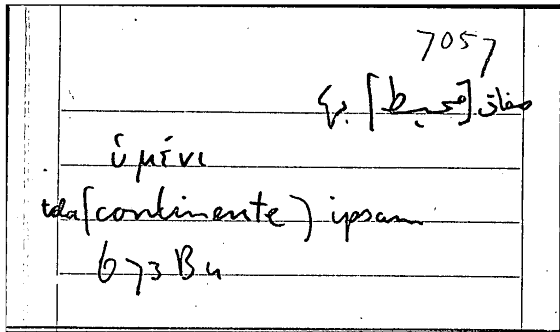 7057
صفاق [محيط] بها
ὑμένι
tela (continente) ipsam
673 B4